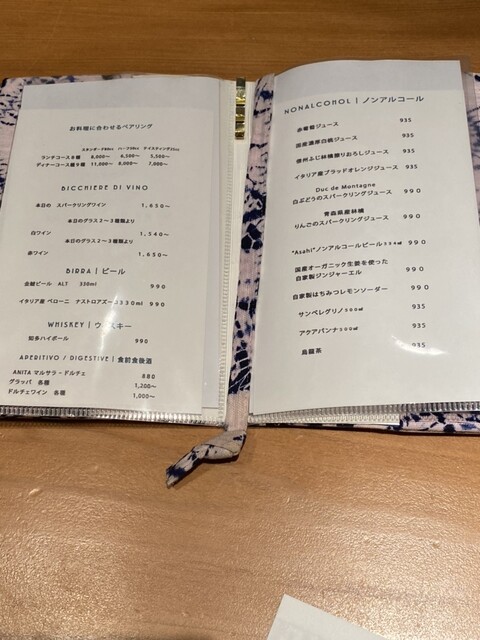 お料理に合わせるペアリング
スタンダード90cc ハーフ50cc テイスティング25cc
ランチコース6種 8,000〜 6,500〜 5,500〜
ディナーコース 11,000〜 8,000〜 7,000〜
BICCHIERE DI VINO
本日の スパークリングワイン 1,650〜
本日のグラス2〜3種類より
白ワイン 1,540〜
本日のグラス2〜3種類より
赤ワイン 1,650〜
BIRRA | ビール
金鯱ビール ALT 330ml 990
イタリア産 ペローニ ナストロアズーロ330ml 990
WHISKEY | ウィスキー
知多ハイボール 990
APERITIVO / DIGESTIVE | 食前食後酒
ANITA マルサラ・ドルチェ 880
グラッパ 各種 1,200〜
ドルチェワイン 各種 1,000〜
NONALCOHOL | ノンアルコール
赤葡萄ジュース 935
国産濃厚白桃ジュース 935
信州ふじ林檎擦りおろしジュース 935
イタリア産ブラッドオレンジジュース 935
Duc de Montagne
白ぶどうのスパークリングジュース 990
青森県産林檎
りんごのスパークリングジュース 990
"Asahi"ノンアルコールビール334ml 990
国産オーガニック生姜を使った
自家製ジンジャーエール 990
自家製はちみつレモンソーダー 990
サンペレグリノ500ml 935
アクアパンナ500ml 935
烏龍茶 935